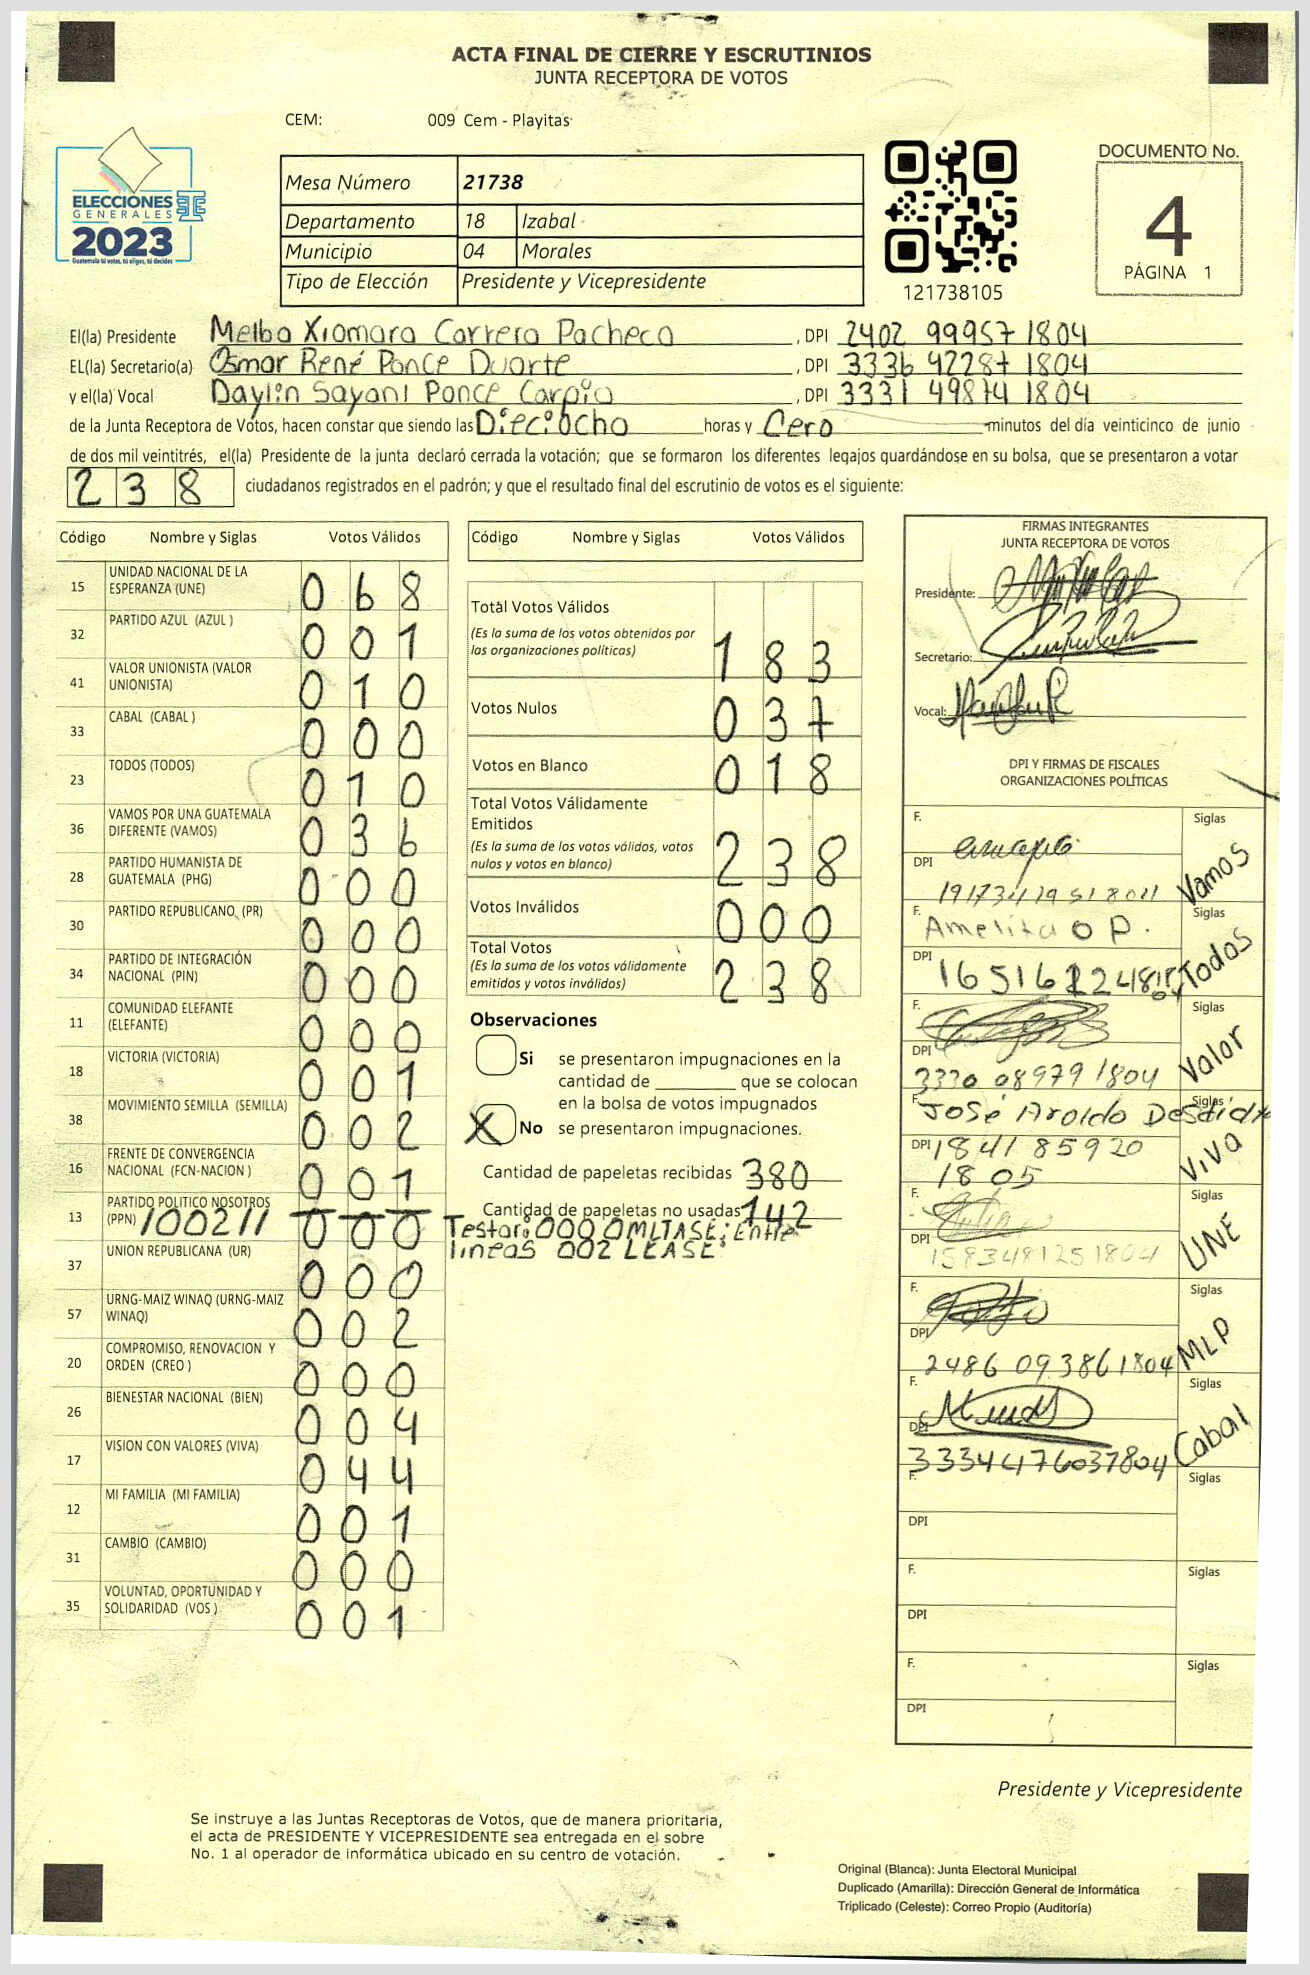 ACTA FINAL DE CIERRE Y ESCRUTINIOS
JUNTA RECEPTORA DE VOTOS
CEM: 009 Cem - Playitas
ELECCIONES
GENERALES
2023
Guatemala tú votas, tú eliges, tú decides
Mesa Número 21738
Departamento 18 Izabal
Municipio 04 Morales
Tipo de Elección Presidente y Vicepresidente
121738105
DOCUMENTO No.
4
PÁGINA 1
El(la) Presidente Melba Xiomara Carrera Pacheco, DPI 2402 99957 1804
EL(la) Secretario(a) Osmar René Ponce Duarte, DPI 3336 42287 1804
y el(la) Vocal Daylin Sayani Ponce Carpio, DPI 3331 49874 1804
de la Junta Receptora de Votos, hacen constar que siendo las Dieciocho horas y Cero minutos del día veinticinco de junio
de dos mil veintitrés, el(la) Presidente de la junta declaró cerrada la votación; que se formaron los diferentes legajos guardándose en su bolsa, que se presentaron a votar
238 ciudadanos registrados en el padrón; y que el resultado final del escrutinio de votos es el siguiente:
Código Nombre y Siglas Votos Válidos
15 UNIDAD NACIONAL DE LA ESPERANZA (UNE) 068
32 PARTIDO AZUL (AZUL ) 001
41 VALOR UNIONISTA (VALOR UNIONISTA) 010
33 CABAL (CABAL ) 000
23 TODOS (TODOS) 010
36 VAMOS POR UNA GUATEMALA DIFERENTE (VAMOS) 036
28 PARTIDO HUMANISTA DE GUATEMALA (PHG) 000
30 PARTIDO REPUBLICANO (PR) 000
34 PARTIDO DE INTEGRACIÓN NACIONAL (PIN) 000
11 COMUNIDAD ELEFANTE (ELEFANTE) 000
18 VICTORIA (VICTORIA) 001
38 MOVIMIENTO SEMILLA (SEMILLA) 002
16 FRENTE DE CONVERGENCIA NACIONAL (FCN-NACION ) 001
13 PARTIDO POLITICO NOSOTROS (PPN) 100211 000
37 UNION REPUBLICANA (UR) 000
57 URNG-MAIZ WINAQ (URNG-MAIZ WINAQ) 002
20 COMPROMISO, RENOVACION Y ORDEN (CREO ) 000
26 BIENESTAR NACIONAL (BIEN) 004
17 VISION CON VALORES (VIVA) 044
12 MI FAMILIA (MI FAMILIA) 001
31 CAMBIO (CAMBIO) 000
35 VOLUNTAD, OPORTUNIDAD Y SOLIDARIDAD (VOS ) 001
Código Nombre y Siglas Votos Válidos
Total Votos Válidos
(Es la suma de los votos obtenidos por
las organizaciones políticas) 183
Votos Nulos 037
Votos en Blanco 018
Total Votos Válidamente
Emitidos
(Es la suma de los votos válidos, votos
nulos y votos en blanco) 238
Votos Inválidos 000
Total Votos
(Es la suma de los votos válidamente
emitidos y votos inválidos) 238
Observaciones
Si se presentaron impugnaciones en la
cantidad de ________ que se colocan
en la bolsa de votos impugnados
X No se presentaron impugnaciones.
Cantidad de papeletas recibidas 380
Cantidad de papeletas no usadas 142
Testar: 000 OMITASE; Entre
lineas 002 LEASE.
FIRMAS INTEGRANTES
JUNTA RECEPTORA DE VOTOS
Presidente:
Secretario:
Vocal:
DPI Y FIRMAS DE FISCALES
ORGANIZACIONES POLÍTICAS
F. Siglas
DPI
Vamos
F. Amelita O P. Siglas
DPI
Todos
F. Siglas
DPI 3330 08979 1804
Valor
F. José Aroldo Siglas
DPI 1841 85920
1805
Viva
F. Siglas
DPI 1583481251804
UNE
F. Siglas
DPI 2486 09386 1804
MLP
F. Siglas
DPI 3334476037804
Cabal
F. Siglas
DPI
F. Siglas
DPI
F. Siglas
DPI
Presidente y Vicepresidente
Se instruye a las Juntas Receptoras de Votos, que de manera prioritaria,
el acta de PRESIDENTE Y VICEPRESIDENTE sea entregada en el sobre
No. 1 al operador de informática ubicado en su centro de votación.
Original (Blanca): Junta Electoral Municipal
Duplicado (Amarilla): Dirección General de Informática
Triplicado (Celeste): Correo Propio (Auditoría)